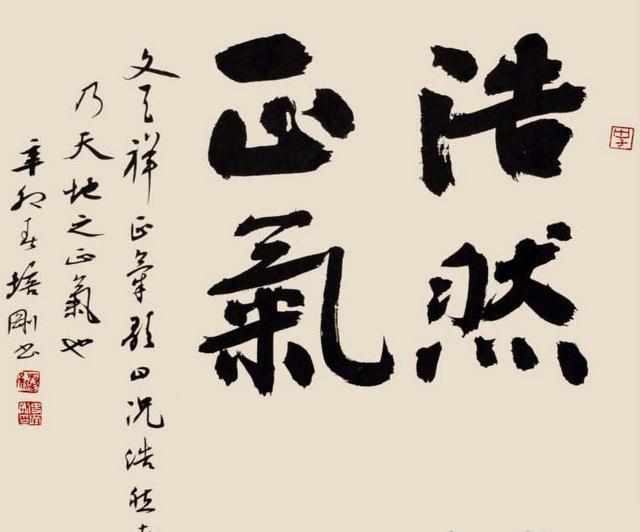 浩然
正氣
文天祥正氣歌曰況浩然者
乃天地之正氣也
辛卯春培剛書